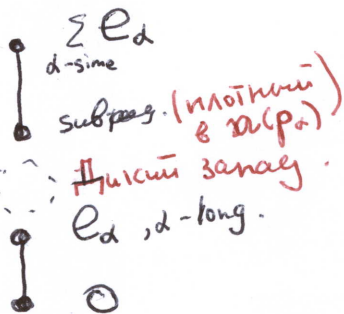 ∑ e_α
α-sime
subрег. (плотный
в 𝔑(p_α)
Дикий запад.
e_α, α-long.
0